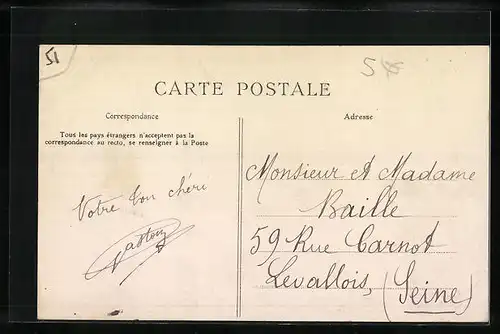 51
5
CARTE POSTALE
Correspondance
Adresse
Tous les pays étrangers n'acceptent pas la
correspondance au recto, se renseigner à la Poste
Votre bon chéri
Monsieur et Madame
Baille
59 Rue Carnot
Levallois, (Seine)